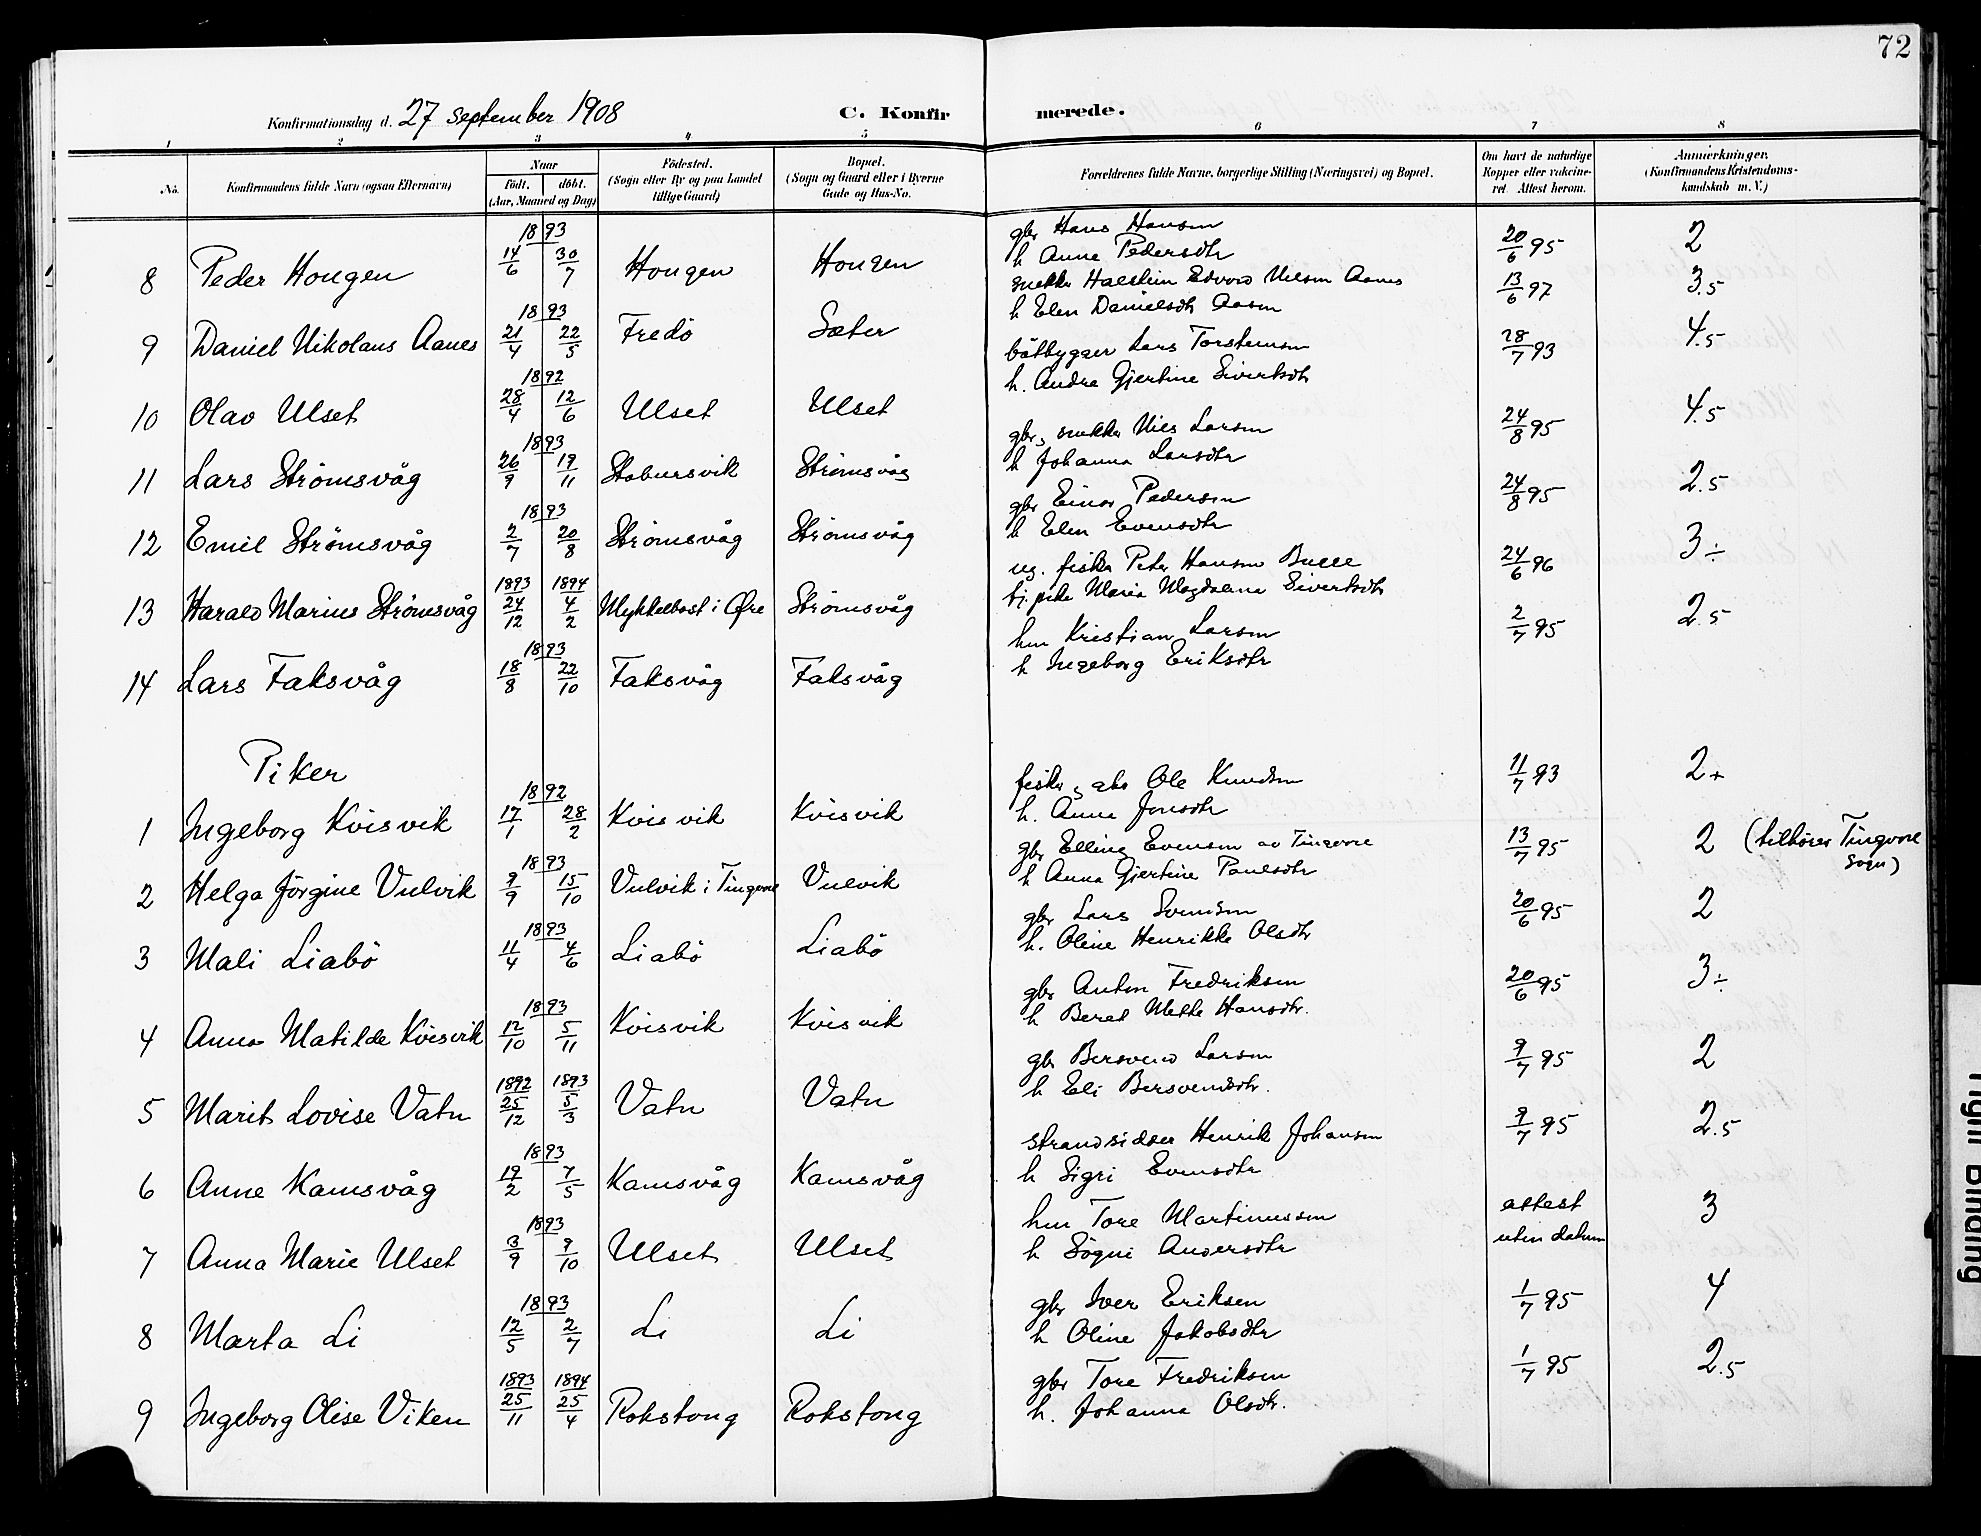 72
Konfirmationsdag d. 27 september 1908 C. Konfirmerede.
1 2 3 4 5 6 7 8
No.
Konfirmandens fulde Navn (ogsaa Efternavn)
Naar
født. døbt.
(Aar, Maaned og Dag)
Födested.
(Sogn eller By og paa Landet
tillige Gaard)
Bopæl.
(Sogn og Gaard eller i Byerne
Gade og Hus-No.
Forældrenes fulde Navne, borgerlige Stilling (Næringsvei) og Bopæl.
Om havt de naturlige
Kopper eller vakcine-
ret. Attest herom.
Anmærkninger.
(Konfirmandens Kristendoms-
kundskab m. V.)
1893
8 Peder Hougen 14/6 30/7 Hougen Hougen gbr Hans Hansen 20/6 95 2
h Anne Pedersdtr
1893
9 Daniel Nikolaus Aanes 21/4 22/5 Fredö Sæter snekker Halstein Edvard Nilsen Aanes 13/6 97 3.5
h Elen Danielsdtr
1892
10 Olav Ulset 28/4 12/6 Ulset Ulset båtbygger Lars Torstensen 28/7 93 4.5
h. Andrea Gjertine Sivertsdtr
1893
11 Lars Strömsvåg 26/9 19/11 Stabursvik Strömsvåg gbr, snekker Nils Larsen 24/8 95 4.5
h Johanna Larsdtr
1893
12 Emil Strömsvåg 2/7 20/8 Strömsvåg Strömsvåg gbr Einar Pedersen 24/8 95 2.5
h Elen Evensdtr
1893 1894
13 Harald Marius Strömsvåg 24/12 4/2 Myklebost i Øre Strömsvåg ug. fisker Peter Hansen 24/6 96 3 ÷
tj. pike Maria Magdalena Sivertsdtr
1893
14 Lars Faksvåg 18/8 22/10 Faksvåg Faksvåg hm Kristian Larsen 2/7 95 2.5
h Ingeborg Eriksdtr
Piker
1892
1 Ingeborg Kvisvik 17/1 28/2 Kvisvik Kvisvik fisker, gbr Ole Knudsen 11/7 93 2+
h. Anna Jonsdtr
1893
2 Helga Jörgine Vulvik 9/9 15/10 Vulvik i Tingvoll Vulvik gbr Elling Evensen av Tingvoll 13/7 95 2 (tilhörer Tingvoll
sogn)
h Anna Gjertine Paulsdtr
1893
3 Mali Liabö 11/4 4/6 Liabö Liabö gbr Lars Svendsen 20/6 95 2
h. Oline Henrikke Olsdtr
1893
4 Anna Matilde Kvisvik 12/10 5/11 Kvisvik Kvisvik gbr Anton Fredriksen 20/6 95 3 ÷
h Beret Mette Hansdtr.
1892 1893
5 Marit Lovise Vatn 25/12 5/3 Vatn Vatn gbr Bersvend Larsen 9/7 95 2
h Eli Bersvendsdtr.
1893
6 Anne Kamsvåg 19/2 7/5 Kamsvåg Kamsvåg strandsidder Henrik Johansen 9/7 95 2.5
h Sigri Evensdtr
1893
7 Anna Marie Ulset 3/9 9/10 Ulset Ulset hm Tore Martinussen attest 3
h Sögni Andersdtr uten datum
1893
8 Marta Li 12/5 2/7 Li Li gbr Iver Eriksen 1/7 95 4
h Oline Jakobsdtr
1893 1894
9 Ingeborg Olise Viken 25/11 25/4 Rokstong Rokstong gbr Tore Fredriksen 1/7 95 2.5
h. Johanna Olsdtr.
Tight Binding